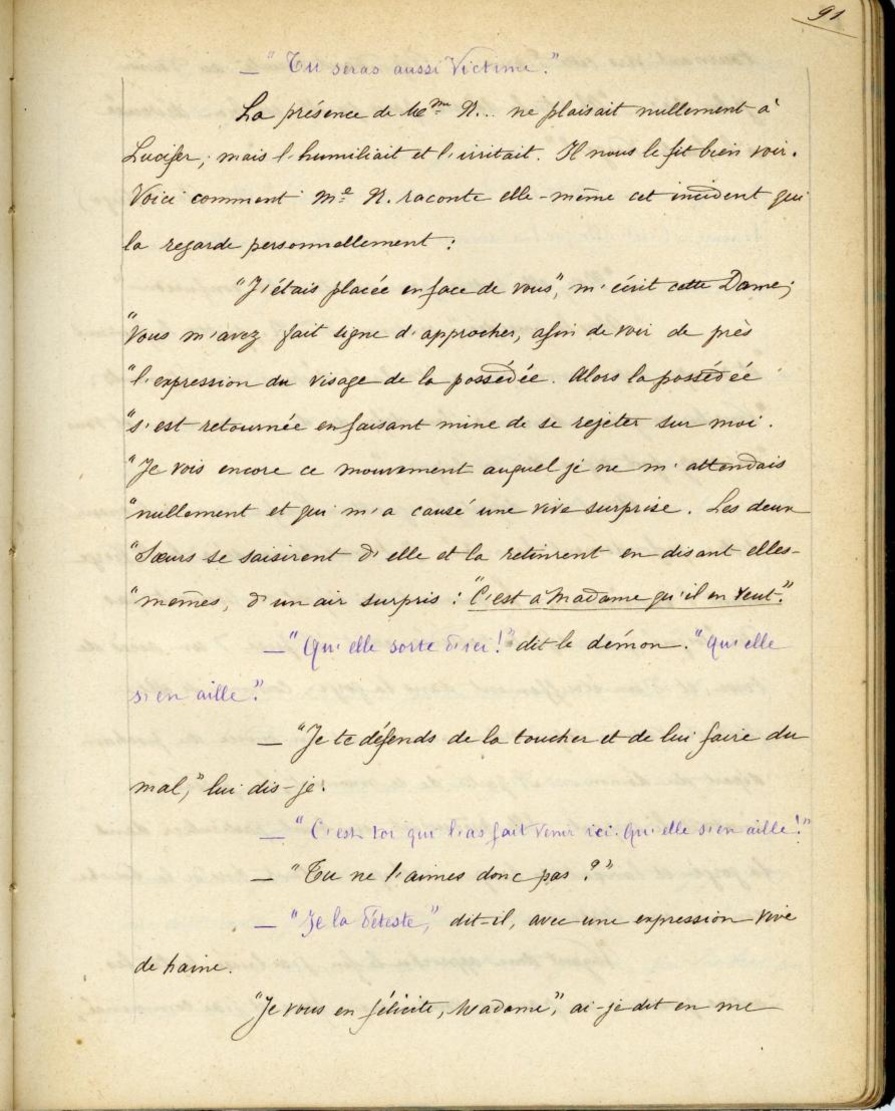 91
— "Tu seras aussi Victime."
La présence de Mme N... ne plaisait nullement à
Lucifer; mais l'humiliait et l'irritait. Il nous le fit bien voir.
Voici comment Me N. raconte elle-même cet incident qui
la regarde personnellement :
"J'étais placée en face de vous", m'écrit cette Dame;
"Vous m'avez fait signe d'approcher, afin de voir de près
"l'expression du visage de la possédée. Alors la possédée
"s'est retournée en faisant mine de se rejeter sur moi.
"Je vois encore ce mouvement auquel je ne m'attendais
"nullement et qui m'a causé une vive surprise. Les deux
"Sœurs se saisirent d'elle et la retinrent en disant elles-
"mêmes, d'un air surpris : "C'est à Madame qu'il en veut."
— "Qu'elle sorte d'ici!" dit le démon. "Qu'elle
s'en aille".
— "Je te défends de la toucher et de lui faire du
mal," lui dis-je.
— "C'est toi qui l'as fait venir ici. Qu'elle s'en aille!"
— "Tu ne l'aimes donc pas ?"
— "Je la déteste," dit-il, avec une expression vive
de haine.
"Je vous en félicite, Madame", ai-je dit en me